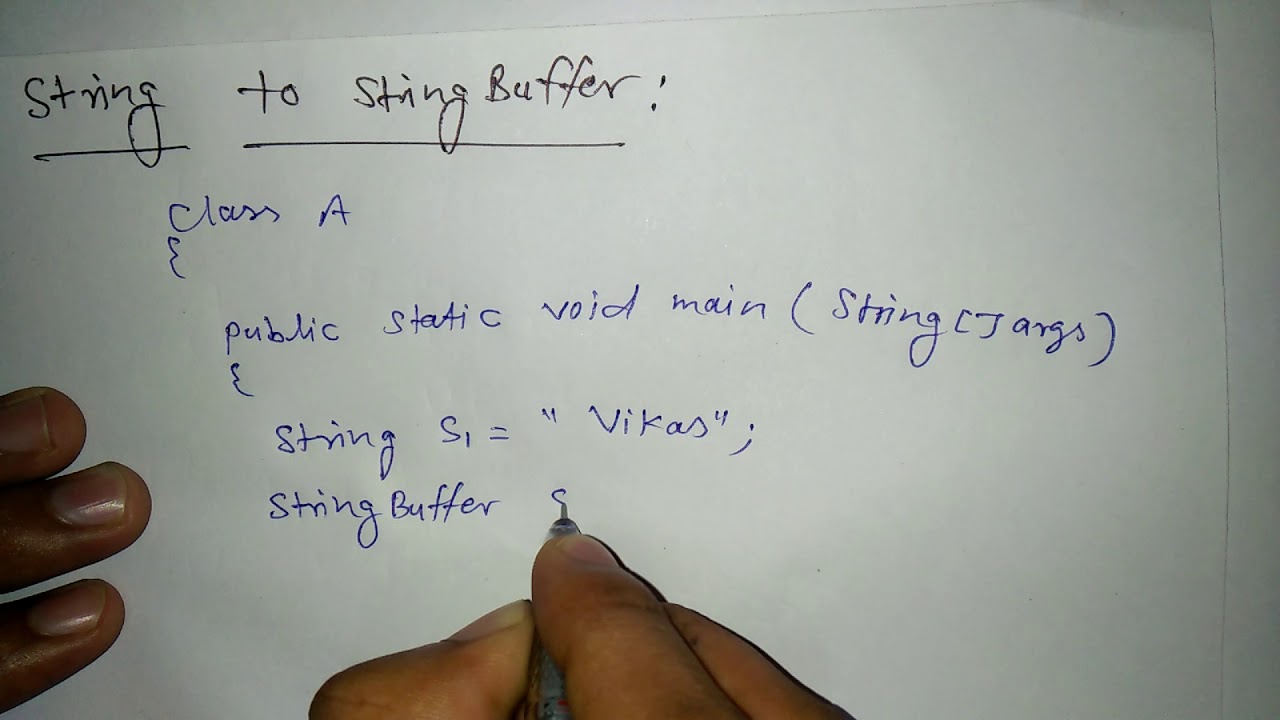 String to StringBuffer:
Class A
{
public static void main (String[] args)
{
String S1 = "Vikas";
StringBuffer S